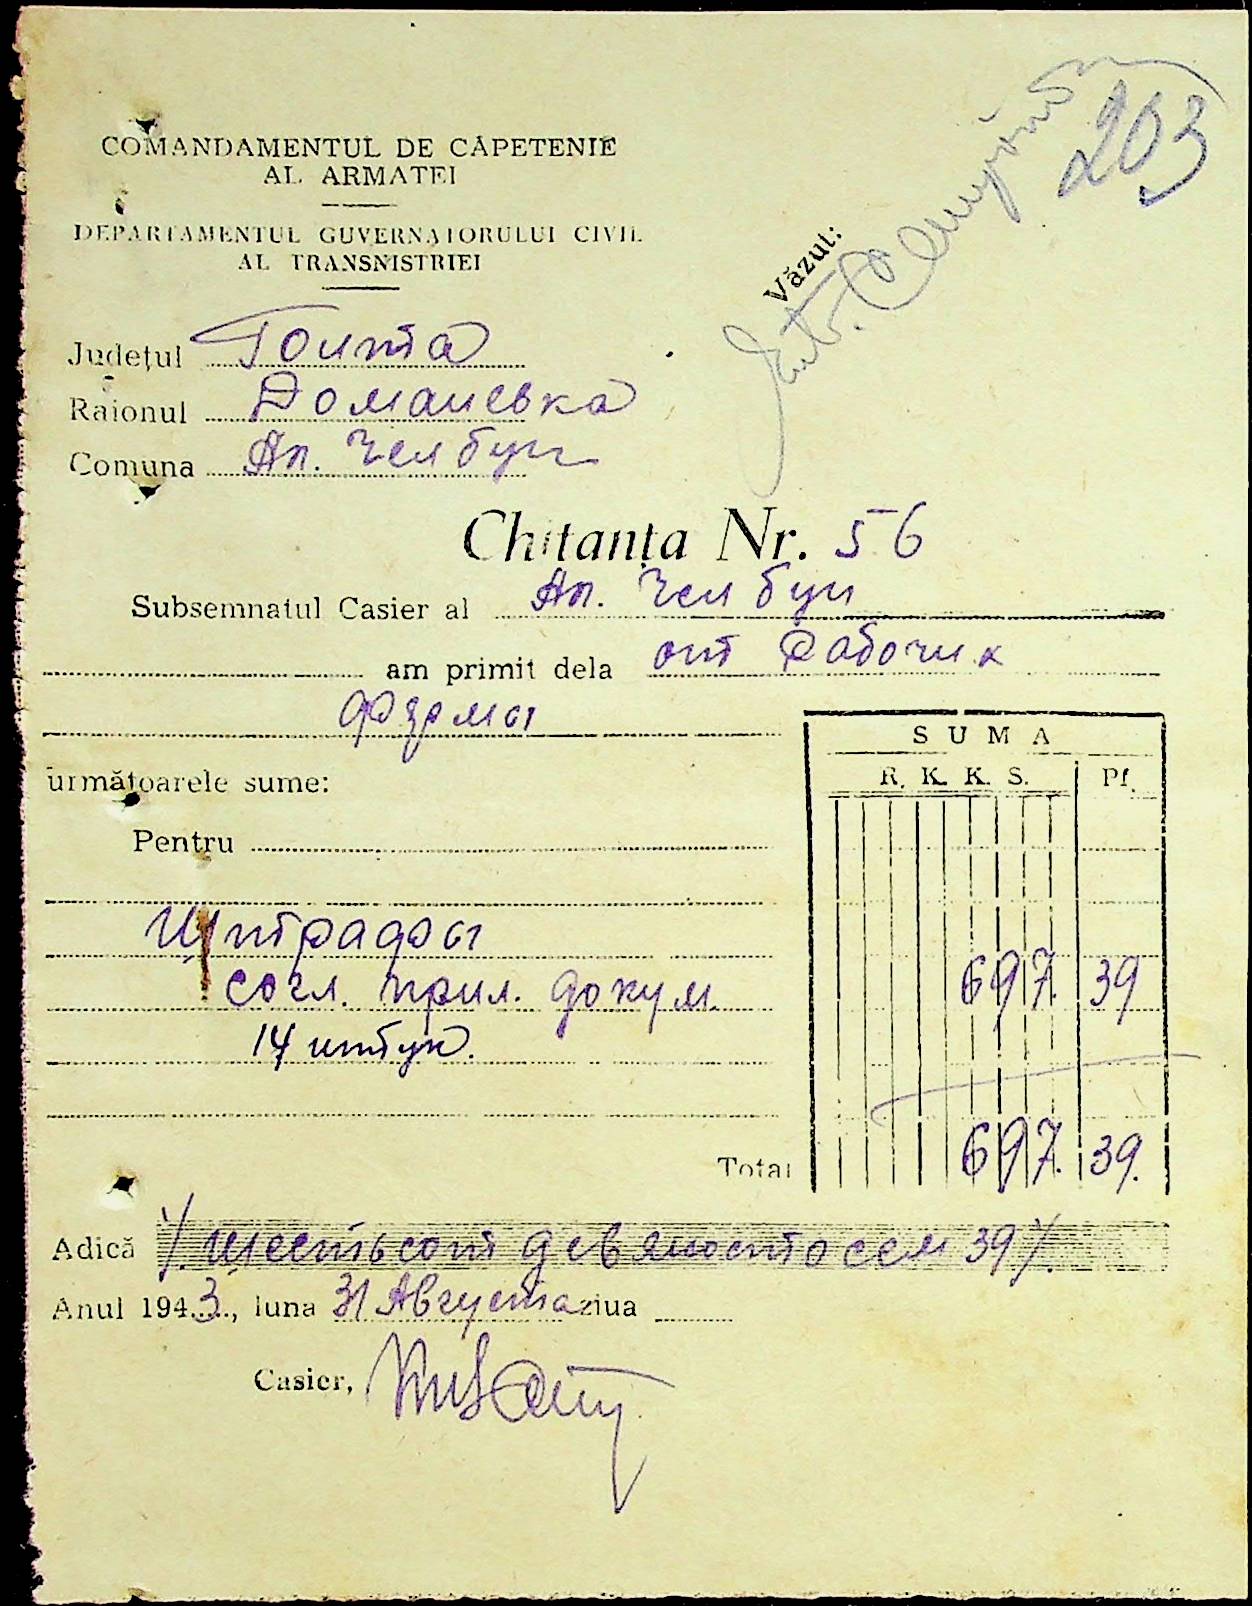 203
COMANDAMENTUL DE CĂPETENIE
AL ARMATEI
DEPARTAMENTUL GUVERNATORULUI CIVIL
AL TRANSNISTRIEI
Văzut:
Județul Голта
Raionul Доманевка
Comuna Ак.
Chitanța Nr. 56
Subsemnatul Casier al Ак.
am primit dela от Рабочих
фермы
următoarele sume:
SUMA
R. K. K. S. Pf.
Pentru
Штрафы
согл. прил. докум. 697. 39
14 штук.
Total 697. 39.
Adică /. шестьсот девяносто сем 39 /.
Anul 1943., luna 31 Августа ziua
Casier,